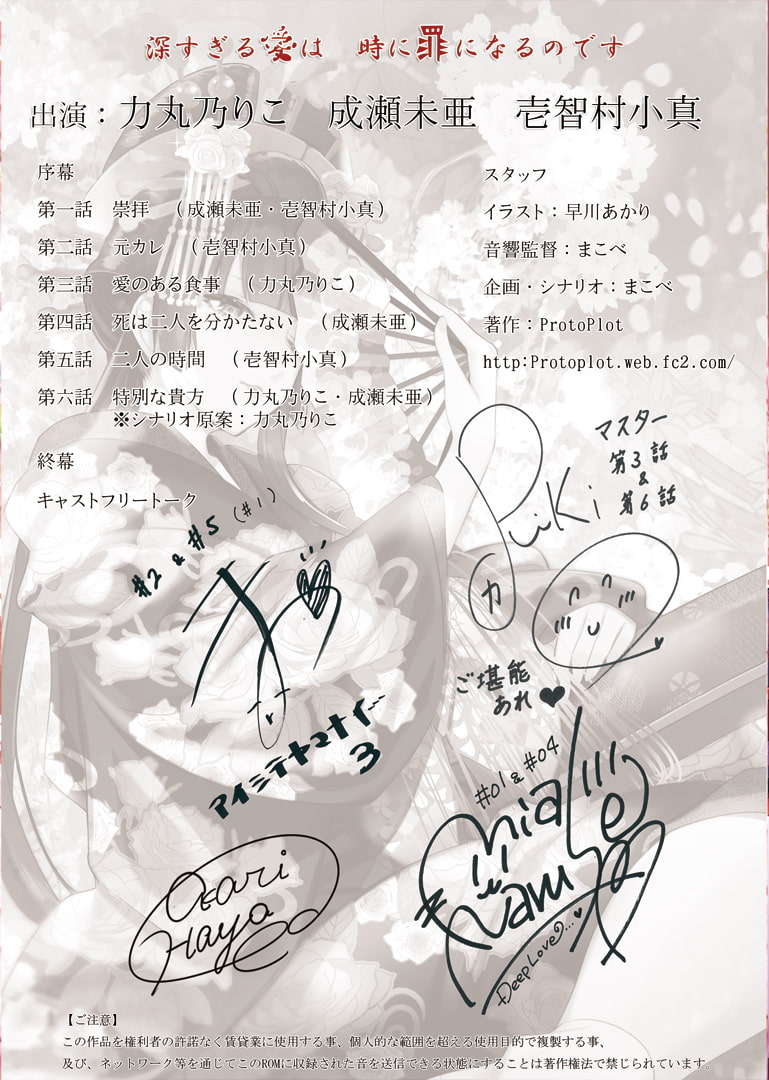 深すぎる愛は 時に罪になるのです
出演：力丸乃りこ 成瀬未亜 壱智村小真
序幕
第一話 崇拝 （成瀬未亜・壱智村小真）
第二話 元カレ （壱智村小真）
第三話 愛のある食事 （力丸乃りこ）
第四話 死は二人を分かたない （成瀬未亜）
第五話 二人の時間 （壱智村小真）
第六話 特別な貴方 （力丸乃りこ・成瀬未亜）
※シナリオ原案：力丸乃りこ
終幕
キャストフリートーク
スタッフ
イラスト：早川あかり
音響監督：まこべ
企画・シナリオ：まこべ
著作：ProtoPlot
http:Protoplot.web.fc2.com/
マスター
第3話
&
第6話
#2 & #5 (#1)
ご堪能
あれ♥
アイミテヤマナイ…
3
#01 & #04
DeepLoveの…♥
【ご注意】
この作品を権利者の許諾なく賃貸業に使用する事、個人的な範囲を超える使用目的で複製する事、
及び、ネットワーク等を通じてこのROMに収録された音を送信できる状態にすることは著作権法で禁じられています。